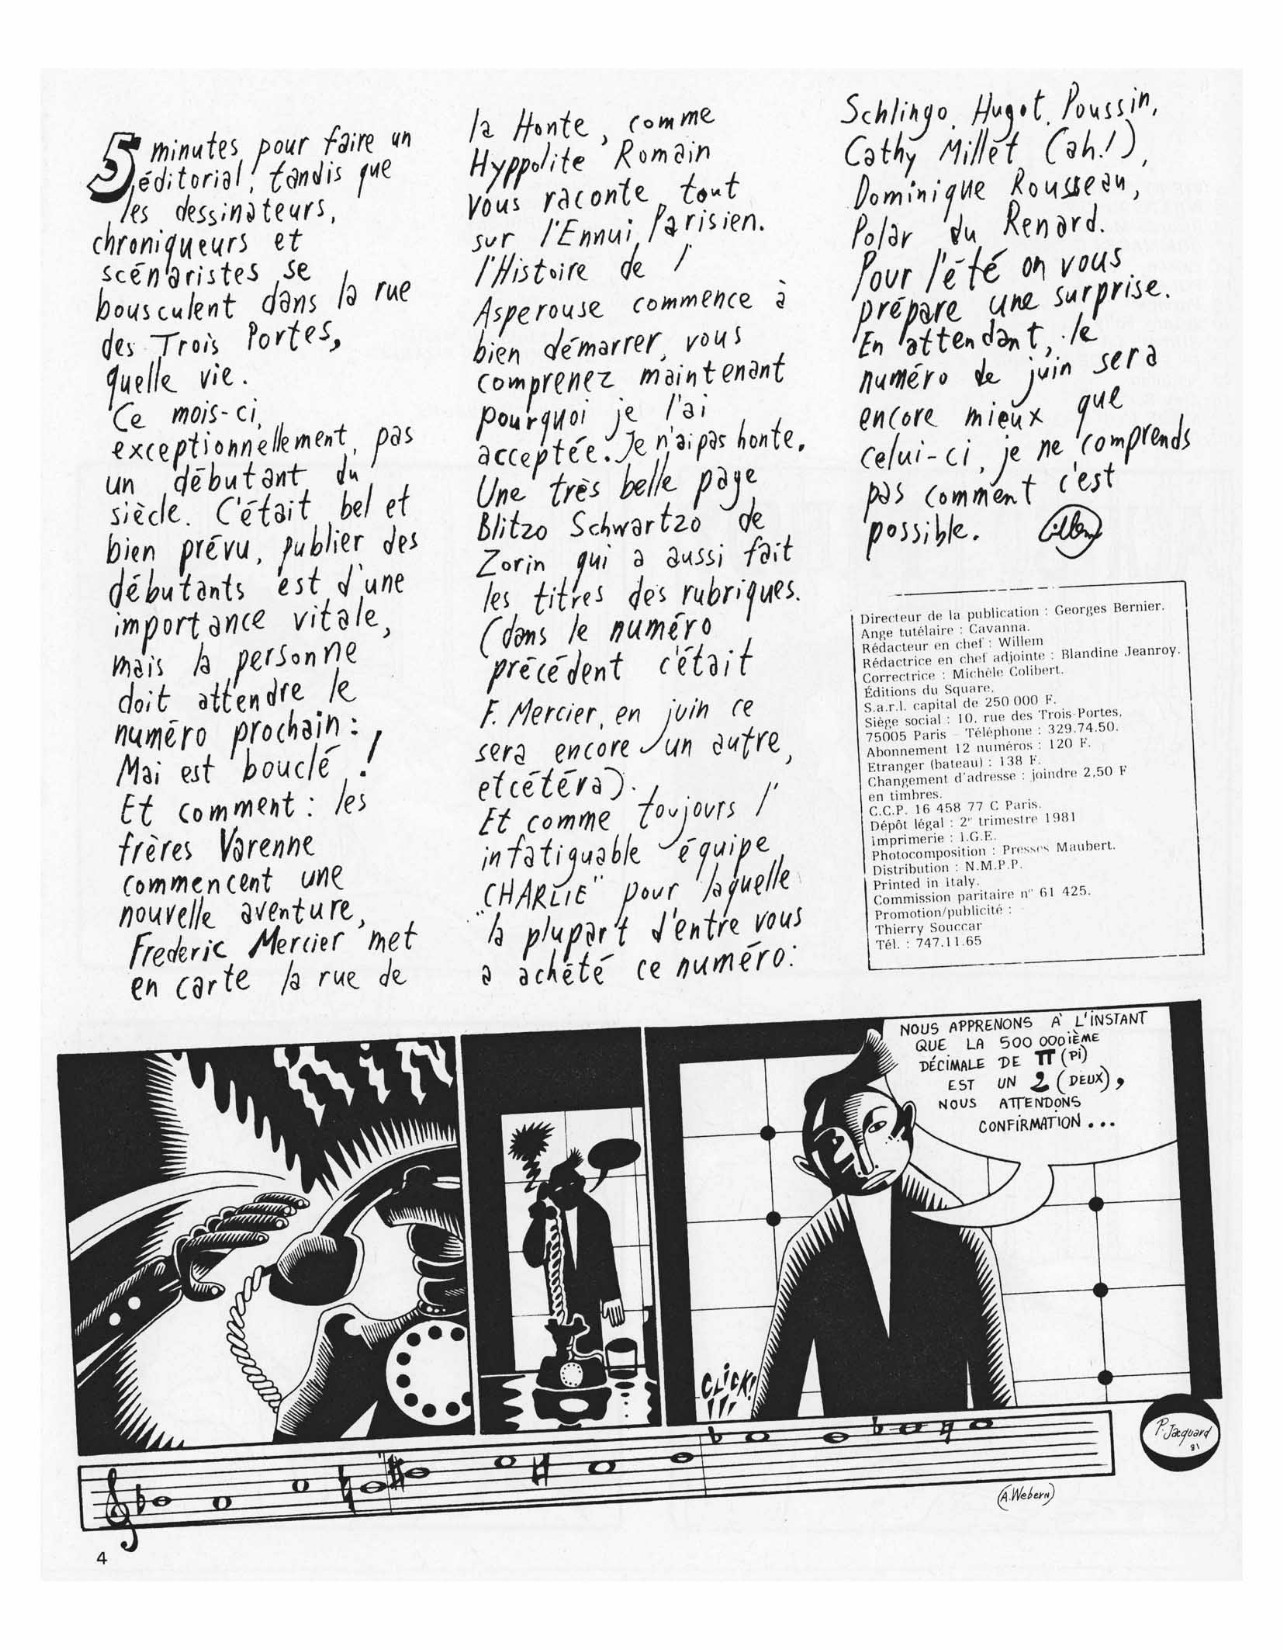 5 minutes pour faire un
éditorial, tandis que
les dessinateurs,
chroniqueurs et
scénaristes se
bousculent dans la rue
des Trois Portes,
quelle vie.
Ce mois-ci,
exceptionnellement, pas
un débutant du
siècle. C'était bel et
bien prévu, publier des
débutants est d'une
importance vitale,
mais la personne
doit attendre le
numéro prochain:
Mai est bouclé !
Et comment: les
frères Varenne
commencent une
nouvelle aventure,
Frederic Mercier met
en carte la rue de
la Honte, comme
Hyppolite Romain
vous raconte tout
sur l'Ennui Parisien.
l'Histoire de l'
Asperouse commence à
bien démarrer, vous
comprenez maintenant
pourquoi je l'ai
acceptée. Je n'ai pas honte.
Une très belle page
Blitzo Schwartzo de
Zorin qui a aussi fait
les titres des rubriques.
(dans le numéro
précédent c'était
F. Mercier, en juin ce
sera encore un autre,
etcétéra).
Et comme toujours l'
infatiguable équipe
"CHARLIE" pour laquelle
la plupart d'entre vous
a achété ce numéro:
Schlingo, Hugot, Poussin,
Cathy Millet (ah!),
Dominique Rousseau,
Polar du Renard.
Pour l'été on vous
prépare une surprise.
En attendant, le
numéro de juin sera
encore mieux que
celui-ci, je ne comprends
pas comment c'est
possible.
Willem
Directeur de la publication : Georges Bernier.
Ange tutélaire : Cavanna.
Rédacteur en chef : Willem
Rédactrice en chef adjointe : Blandine Jeanroy.
Correctrice : Michèle Colibert.
Éditions du Square,
S.a.r.l. capital de 250 000 F.
Siège social : 10, rue des Trois-Portes,
75005 Paris - Téléphone : 329.74.50.
Abonnement 12 numéros : 120 F.
Etranger (bateau) : 138 F.
Changement d'adresse : joindre 2,50 F
en timbres.
C.C.P. 16 458 77 C Paris.
Dépôt légal : 2e trimestre 1981
Imprimerie : I.G.E.
Photocomposition : Presses Maubert.
Distribution : N.M.P.P.
Printed in Italy.
Commission paritaire n° 61 425.
Promotion/publicité :
Thierry Souccar
Tél. : 747.11.65
NOUS APPRENONS À L'INSTANT
QUE LA 500 000IÈME
DÉCIMALE DE π (PI)
EST UN 2 (DEUX),
NOUS ATTENDONS
CONFIRMATION...
CLICK!
P. Jacquard
81
(A. Webern)
4